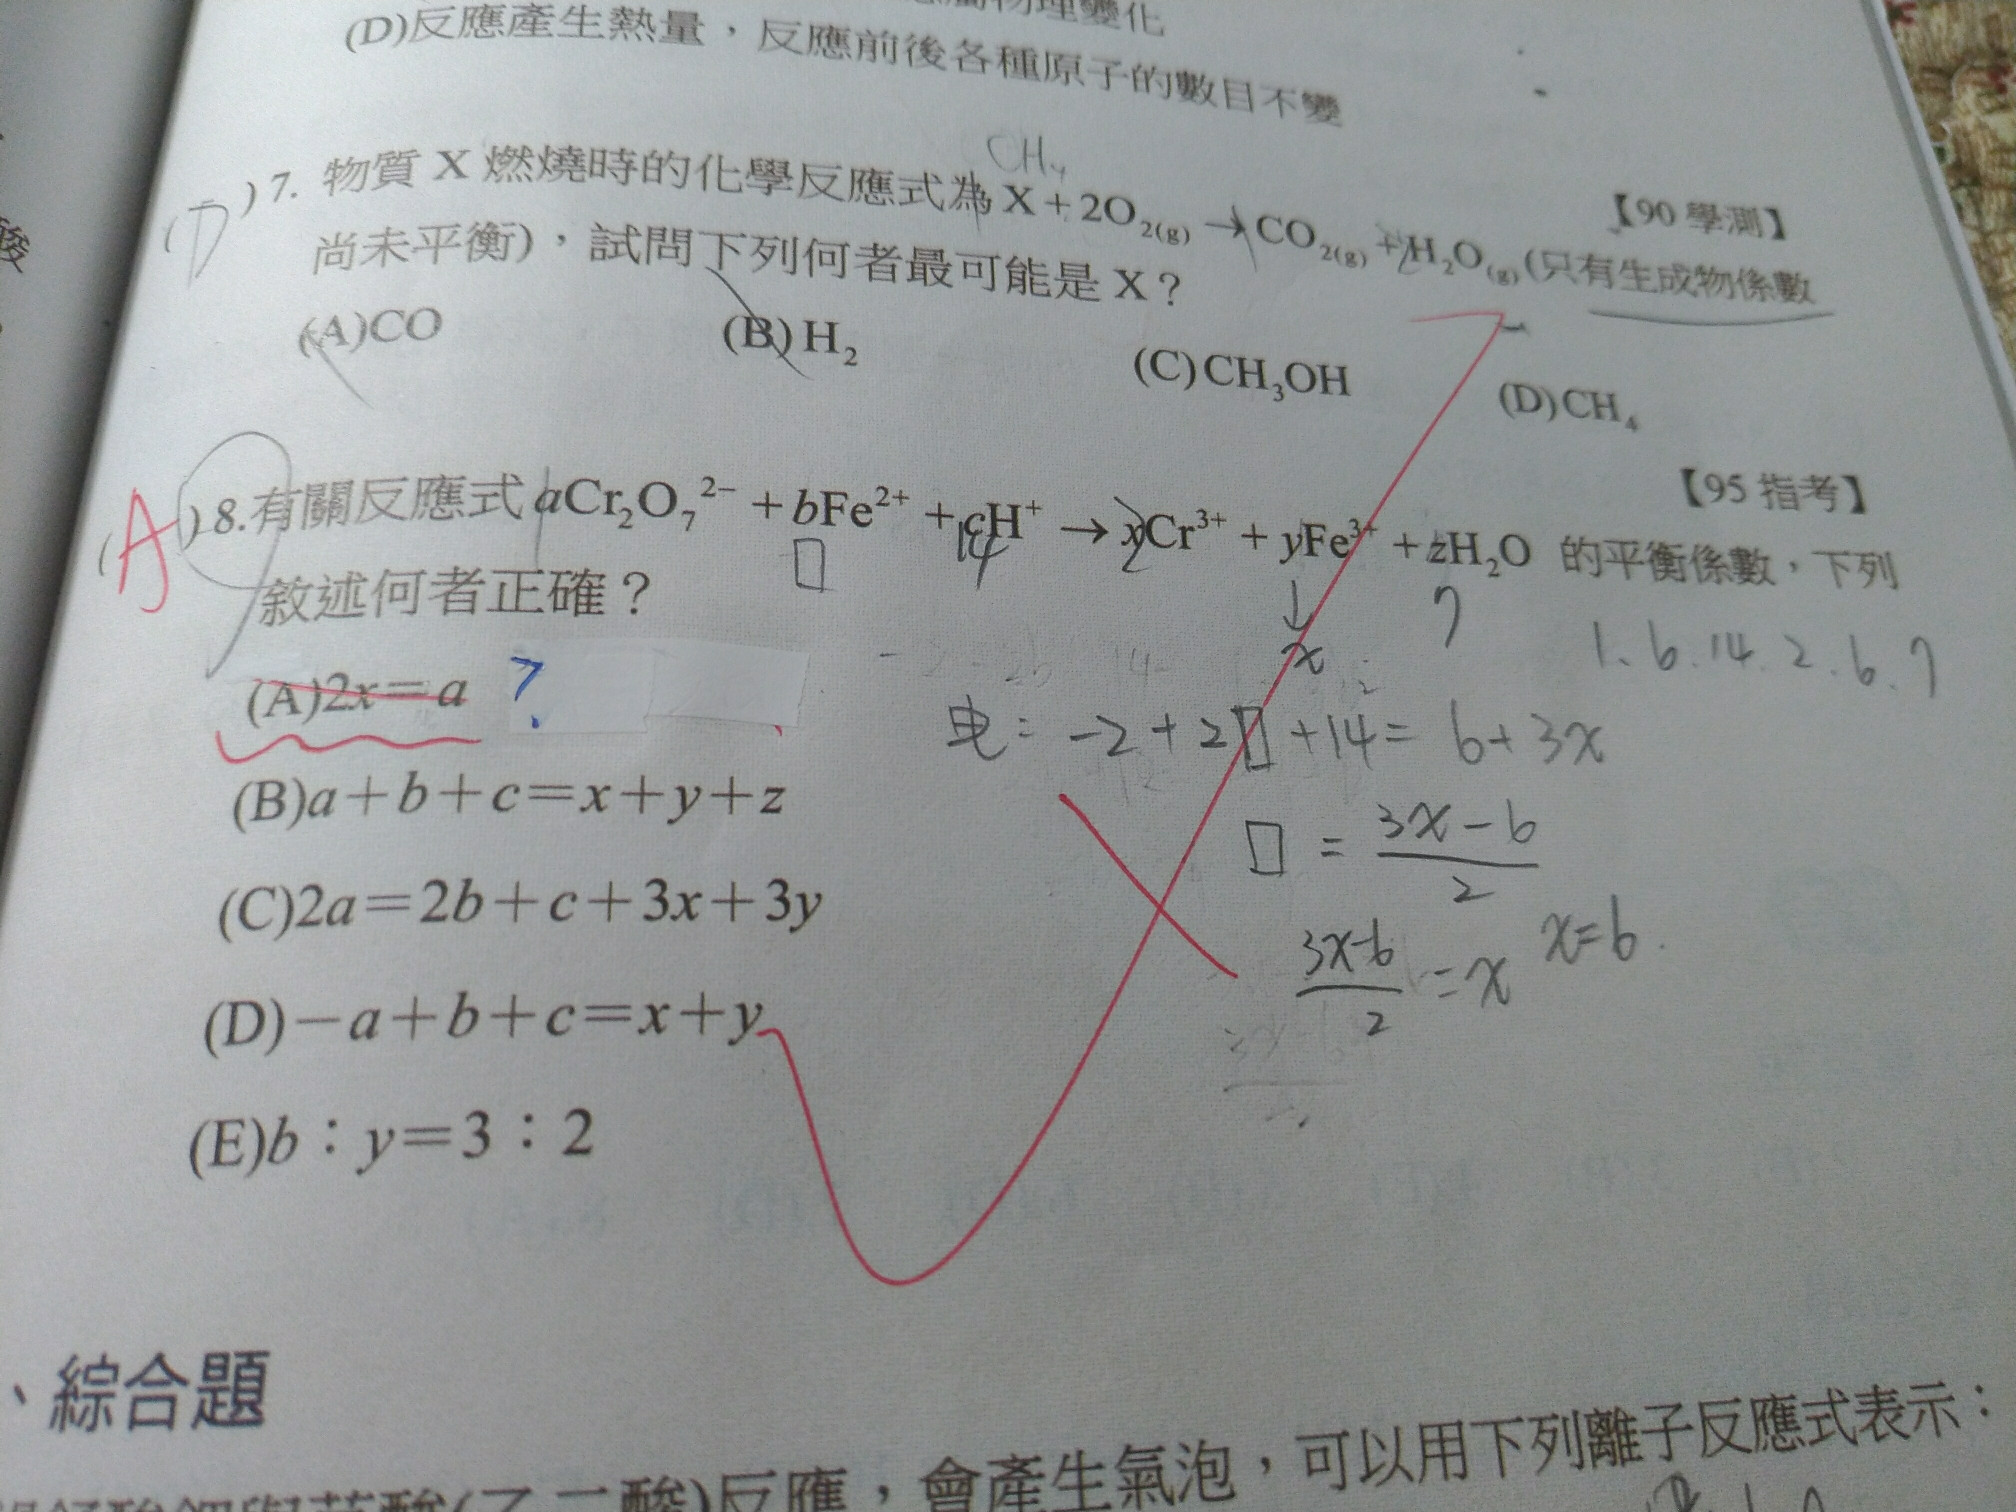 (D)反應產生熱量，反應前後各種原子的數目不變
CH₄
【90 學測】
(D)7. 物質 X 燃燒時的化學反應式為 X + 2O₂(g) → CO₂(g) + 2H₂O(g) (只有生成物係數
尚未平衡)，試問下列何者最可能是 X？
(A)CO (B)H₂ (C)CH₃OH (D)CH₄
【95 指考】
(A)8.有關反應式 aCr₂O₇²⁻ + bFe²⁺ + cH⁺ → xCr³⁺ + yFe³⁺ + zH₂O 的平衡係數，下列
□ 14 2 ↓ 7
x
敘述何者正確？
1. 6. 14. 2. 6. 7
(A)2x=a ?
电: -2 + 2□ + 14 = 6 + 3x
(B)a+b+c=x+y+z
□ = 3x-6/2
(C)2a=2b+c+3x+3y
3x-6/2 = x x=6.
(D)-a+b+c=x+y
(E)b：y=3：2
、綜合題
反應，會產生氣泡，可以用下列離子反應式表示：